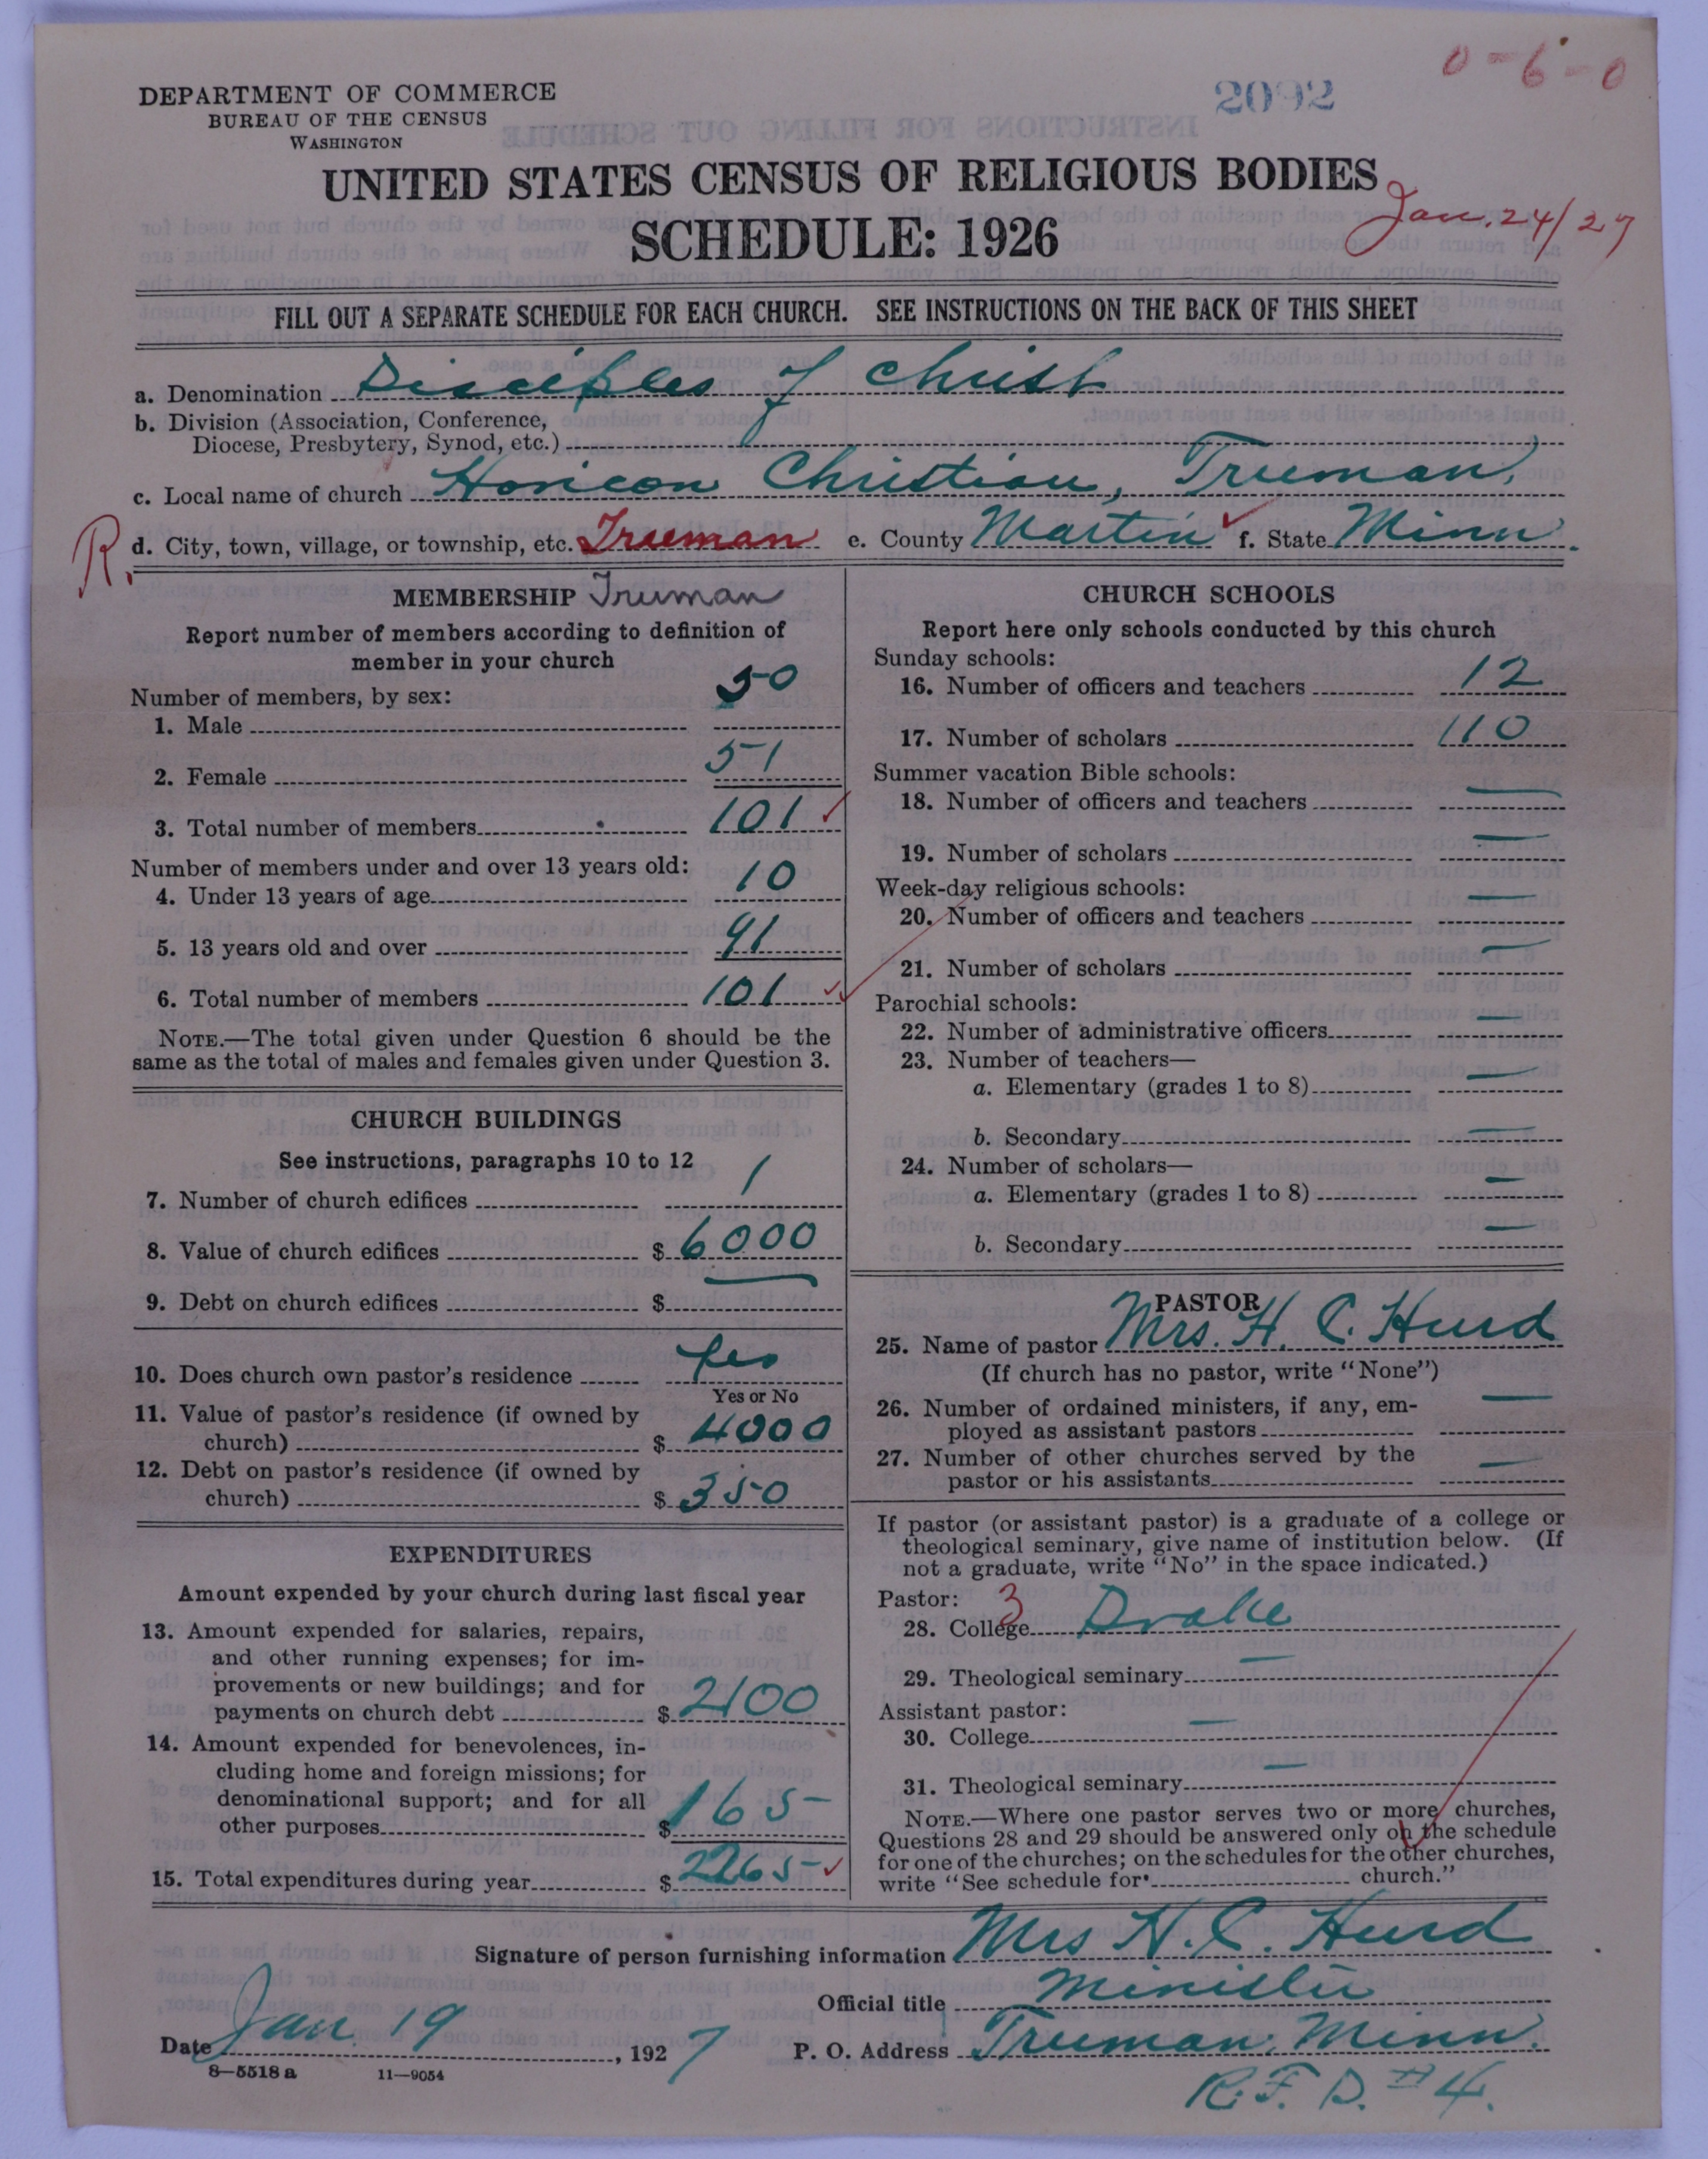 0-6-0
2092
DEPARTMENT OF COMMERCE
BUREAU OF THE CENSUS
WASHINGTON
UNITED STATES CENSUS OF RELIGIOUS BODIES
Jan. 24/27
SCHEDULE: 1926
FILL OUT A SEPARATE SCHEDULE FOR EACH CHURCH. SEE INSTRUCTIONS ON THE BACK OF THIS SHEET
a. Denomination Disciples of Christ
b. Division (Association, Conference,
Diocese, Presbytery, Synod, etc.)
c. Local name of church Horicon Christian, Truman,
R. d. City, town, village, or township, etc. Truman e. County Martin f. State Minn.
MEMBERSHIP Truman
Report number of members according to definition of
member in your church
Number of members, by sex:
1. Male 50
2. Female 51
3. Total number of members 101
Number of members under and over 13 years old:
4. Under 13 years of age 10
5. 13 years old and over 91
6. Total number of members 101
NOTE.—The total given under Question 6 should be the
same as the total of males and females given under Question 3.
CHURCH BUILDINGS
See instructions, paragraphs 10 to 12
7. Number of church edifices 1
8. Value of church edifices $ 6000
9. Debt on church edifices $ —
10. Does church own pastor's residence Yes
Yes or No
11. Value of pastor's residence (if owned by
church) $ 4000
12. Debt on pastor's residence (if owned by
church) $ 350
EXPENDITURES
Amount expended by your church during last fiscal year
13. Amount expended for salaries, repairs,
and other running expenses; for im-
provements or new buildings; and for
payments on church debt $ 2100
14. Amount expended for benevolences, in-
cluding home and foreign missions; for
denominational support; and for all
other purposes $ 165
15. Total expenditures during year $ 2265
CHURCH SCHOOLS
Report here only schools conducted by this church
Sunday schools:
16. Number of officers and teachers 12
17. Number of scholars 110
Summer vacation Bible schools:
18. Number of officers and teachers —
19. Number of scholars —
Week-day religious schools:
20. Number of officers and teachers —
21. Number of scholars —
Parochial schools:
22. Number of administrative officers —
23. Number of teachers—
a. Elementary (grades 1 to 8) —
b. Secondary —
24. Number of scholars—
a. Elementary (grades 1 to 8) —
b. Secondary —
PASTOR
25. Name of pastor Mrs. H. C. Hurd
(If church has no pastor, write "None")
26. Number of ordained ministers, if any, em-
ployed as assistant pastors —
27. Number of other churches served by the
pastor or his assistants —
If pastor (or assistant pastor) is a graduate of a college or
theological seminary, give name of institution below. (If
not a graduate, write "No" in the space indicated.)
Pastor: 3
28. College Drake
29. Theological seminary —
Assistant pastor:
30. College —
31. Theological seminary —
NOTE.—Where one pastor serves two or more churches,
Questions 28 and 29 should be answered only on the schedule
for one of the churches; on the schedules for the other churches,
write "See schedule for church."
Signature of person furnishing information Mrs H. C. Hurd
Official title Minister
Date Jan 19, 1927 P. O. Address Truman, Minn.
8—5518 a 11—9054
R.F.D. #4.